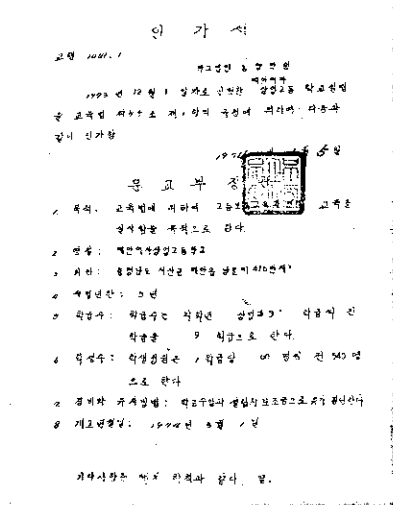 인 가 서
고행 1041.1
학교법인 학원
1973 년 12 월 1 일자로 신청한 상업고등 학교설립
을 교육법 제 조 제 1 항의 규정에 의하여 다음과
같이 인가함
197 5 일
문 교 부 장 관
1 목적. 교육법에 의하여 고등보통교육 교육을
실시함을 목적으로 한다.
2 명칭: 태안여자상업고등학교
3 위치: 충청남도 서산군 태안읍 남문리
4 수업년한: 3 년
5 학급수: 학급수는 각학년 상업과 3 학급씩 전
학급을 9 학급으로 한다.
6 학생수: 학생정원은 1 학급당 60 명씩 전 540 명
으로 한다
7 경비와 유지방법: 학교수입과 설립자 보조금으로
8 개교년월일: 1974 년 3 월 1 일
기타사항은 학칙과 같다. 끝.